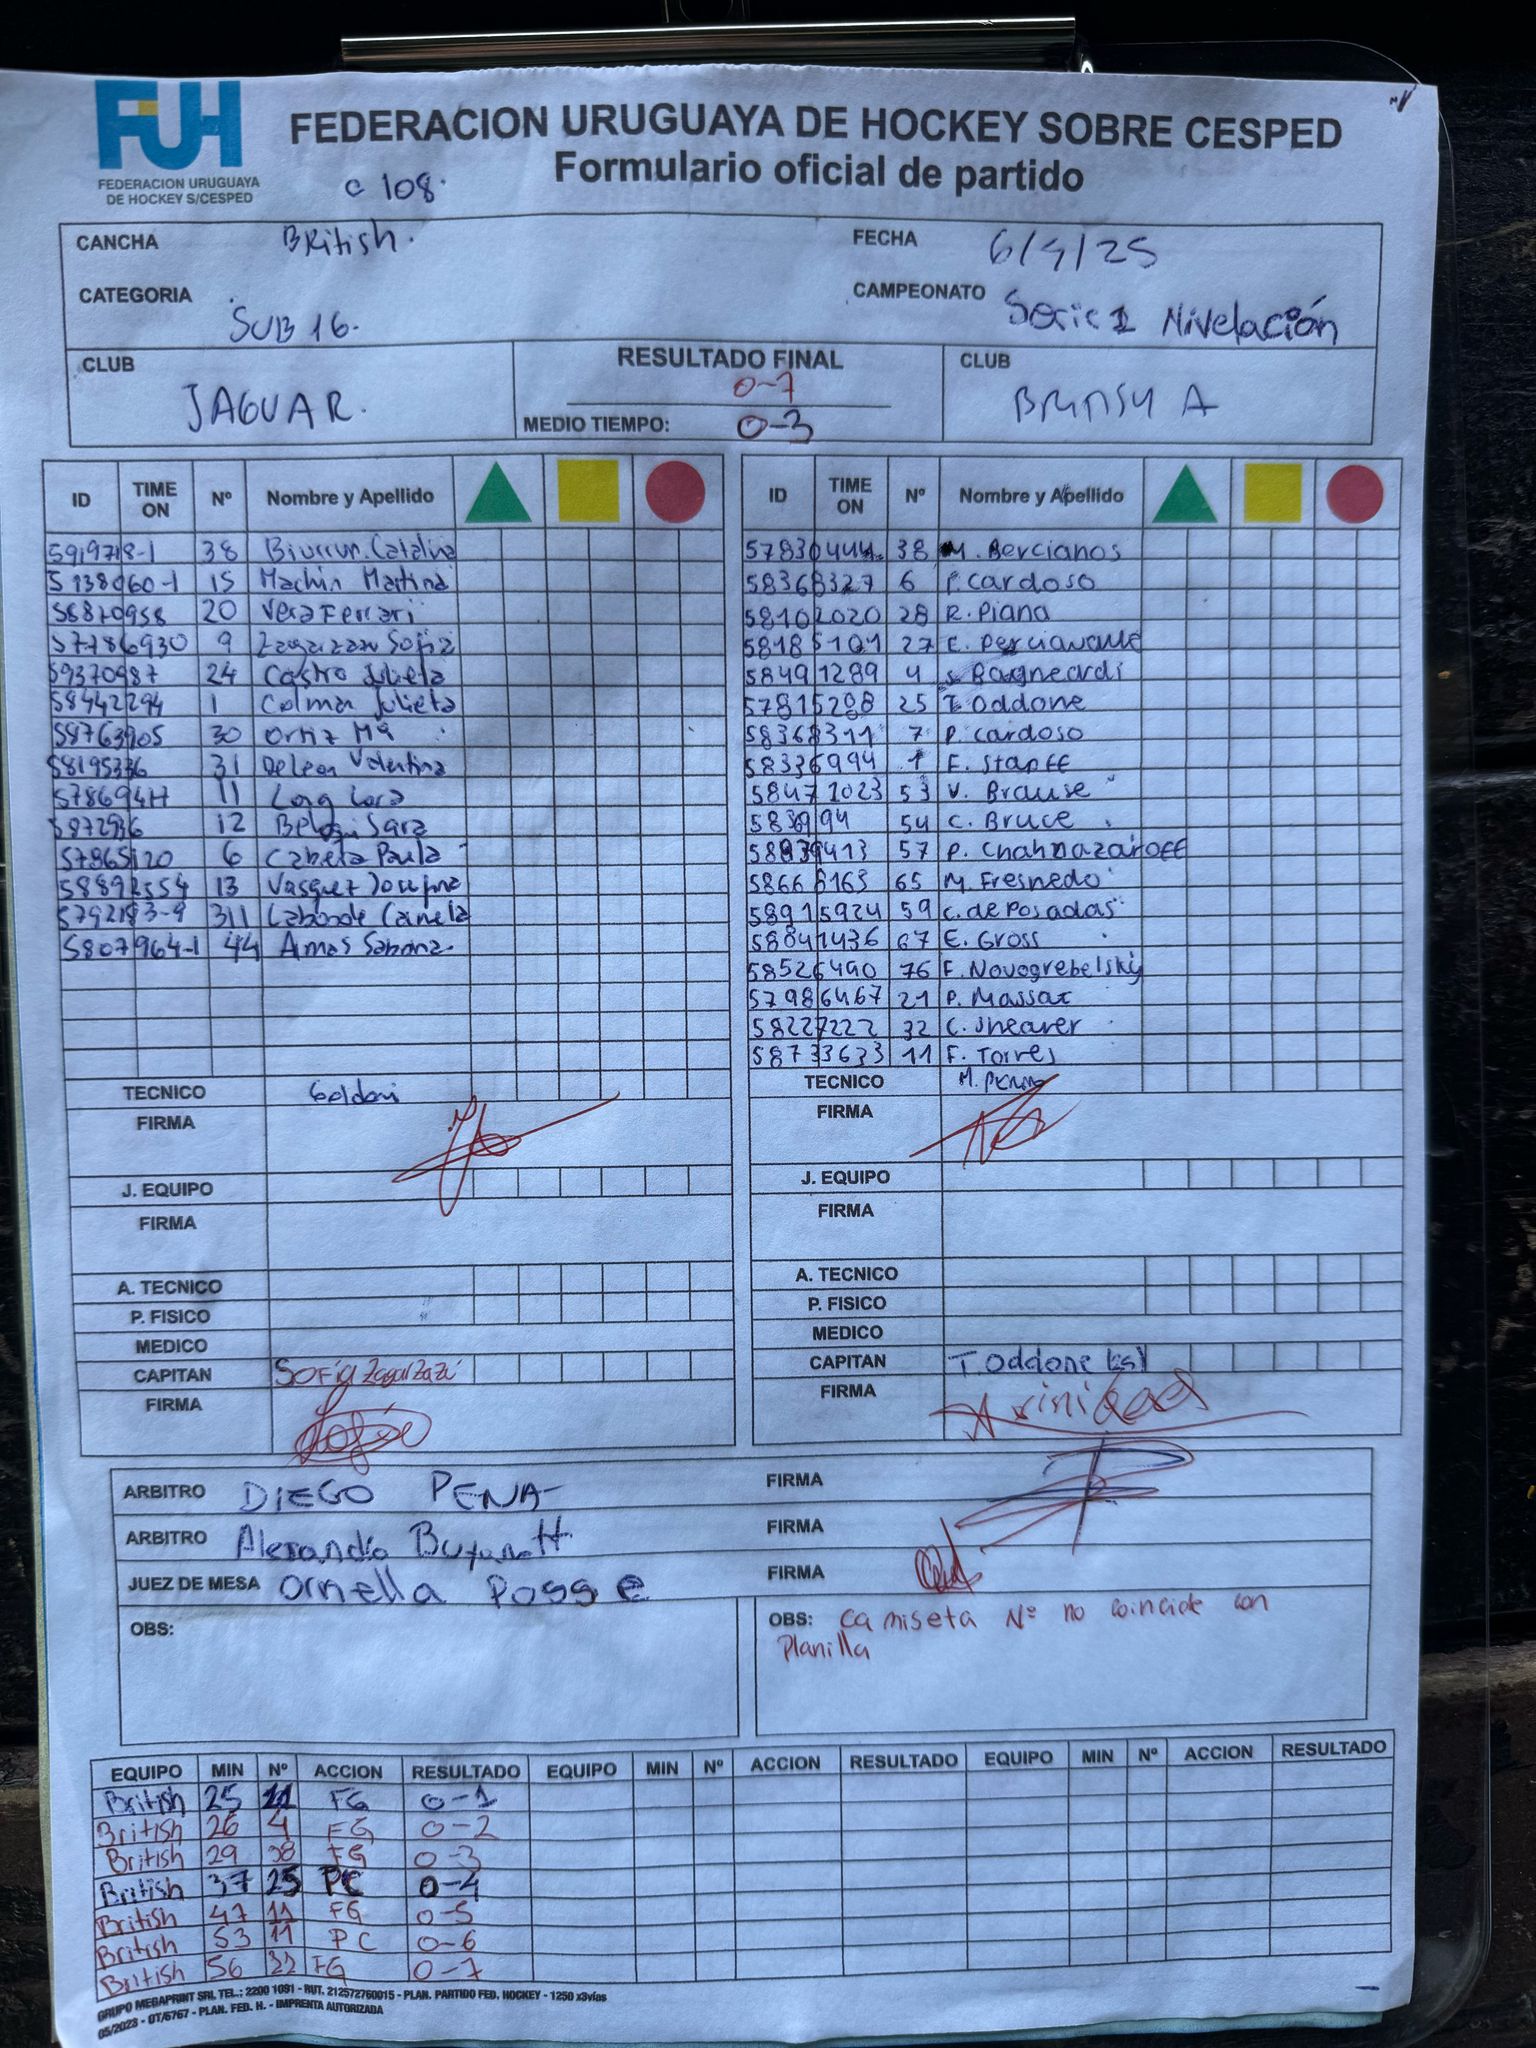 FUH
FEDERACION URUGUAYA
DE HOCKEY S/CESPED
FEDERACION URUGUAYA DE HOCKEY SOBRE CESPED
Formulario oficial de partido
C 108.
CANCHA British. FECHA 6/4/25
CATEGORIA SUB 16. CAMPEONATO Serie 1 Nivelación
CLUB JAGUAR. RESULTADO FINAL 0-7 CLUB British A
MEDIO TIEMPO: 0-3
ID TIME ON Nº Nombre y Apellido
5919718-1 38 Biurrun Catalina
5138060-1 15 Machin Martina
56870958 20 Vera Ferrari
57786930 9 Sofia
59370987 24 Castro Julieta
58442294 1 Colman Julieta
58763905 30 Ortiz Mª
58195336 31 Deleon Valentina
11 Lara
12 Sara
57865120 6 Cabeta Paula
58892554 13 Vasquez Josefina
5792183-9 311 Camela
5807964-1 44 Amas
TECNICO Goldoni
FIRMA
J. EQUIPO
FIRMA
A. TECNICO
P. FISICO
MEDICO
CAPITAN Sofia Zagarzazú
FIRMA
ID TIME ON Nº Nombre y Apellido
57830444 38 M. Bercianos
58368327 6 P. Cardoso
58102020 28 R. Piana
58185101 27 E.
58491289 4 S. Bagneardi
57815288 25 T. Oddone
58368311 7 P. Cardoso
58336994 1 E. Stapff
58471023 53 V. Brause
54 C. Bruce
57 P. Chahnazaroff
58668163 65 M. Fresnedo
58915924 59 C. de Posadas
58841436 67 E. Gross
58526490 76 F. Novogrebelsky
57986467 21 P. Massat
58227222 32 C. Shearer
58733633 11 F. Torres
TECNICO M.
FIRMA
J. EQUIPO
FIRMA
A. TECNICO
P. FISICO
MEDICO
CAPITAN T. Oddone
FIRMA Trinidad
ARBITRO DIEGO PENA FIRMA
ARBITRO FIRMA
JUEZ DE MESA Ornella Posse FIRMA
OBS:
OBS: camiseta Nº no coincide con
Planilla
EQUIPO MIN Nº ACCION RESULTADO EQUIPO MIN Nº ACCION RESULTADO EQUIPO MIN Nº ACCION RESULTADO
British 25 11 FG 0-1
British 26 4 FG 0-2
British 29 38 FG 0-3
British 37 25 PC 0-4
British 47 11 FG 0-5
British 53 11 PC 0-6
British 56 32 FG 0-7
GRUPO MEGAPRINT SRL TEL.: 2200 1091 - RUT. 212572760015 - PLAN. PARTIDO FED. HOCKEY - 1250 x3vías
05/2023 - OT/6767 - PLAN. FED. H. - IMPRENTA AUTORIZADA